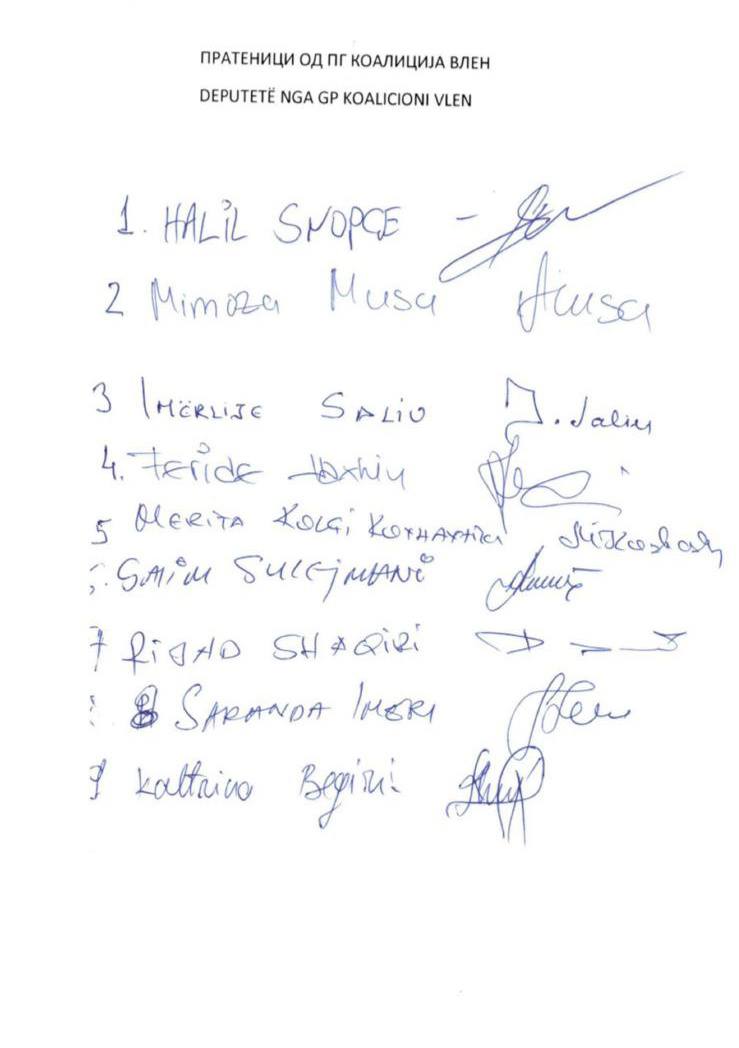 ПРАТЕНИЦИ ОД ПГ КОАЛИЦИЈА ВЛЕН
DEPUTETË NGA GP KOALICIONI VLEN
1. HALiL SNOPÇE -
2 Mimoza Musa Musa
3 IMËRLIJE SALIU J. Saliu
4. FERiDE HAXHIU
5 MERITA KOLÇI KOXHAXHIKU
SAiM SULEJMANi
7 RiJAD SHAQIRI
8 SARANDA IMERI
9 Kaltrina Beqiri